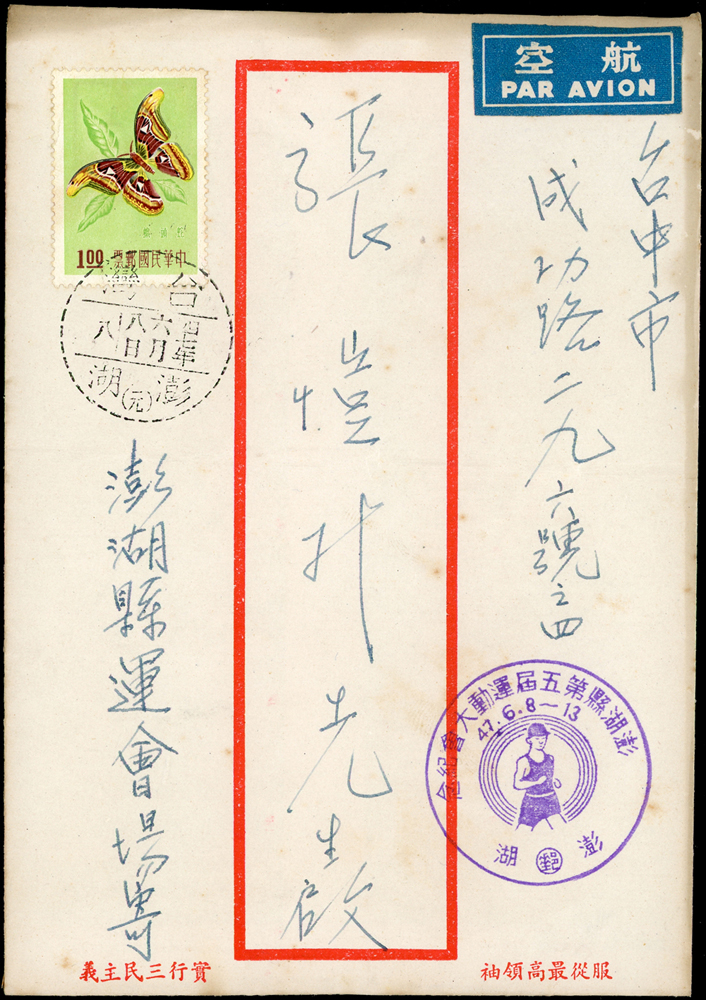 航空
PAR AVION
台中市
成功路二九六號之四
張愷升先生啟
澎湖縣運會場寄
中華民國郵票
1.00
台灣
四七年六月八日
十八
澎湖
(元)
澎湖縣第五屆運動大會紀念
47.6.8～13
澎郵湖
服從最高領袖
實行三民主義